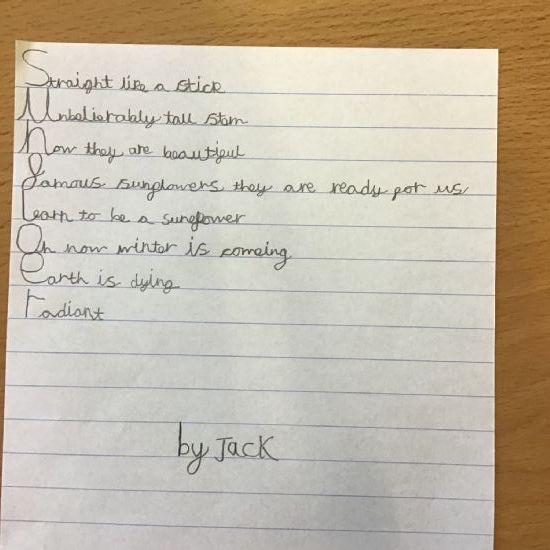 Straight like a stick
Unbelierably tall stem
Now they are beautiful
famous sunflowers they are ready for us
Learn to be a sunflower
Oh now winter is comeing
earth is dying
radiant
by Jack